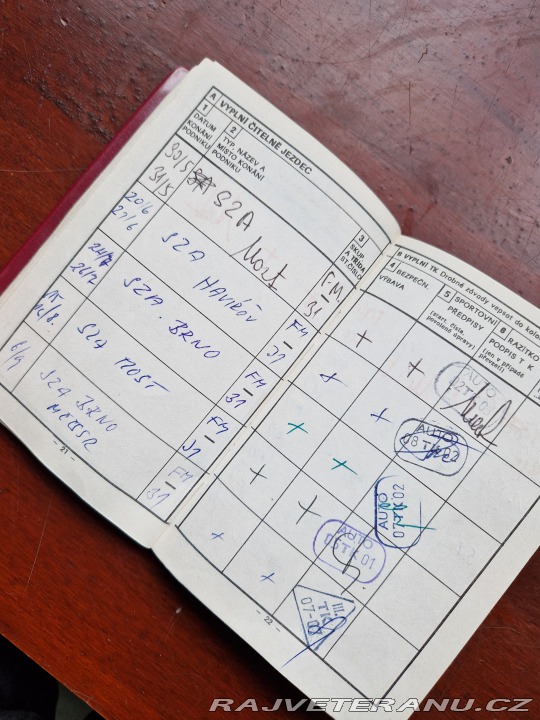 A VYPLNÍ ČITELNĚ JEZDEC
1
DATUM
KONÁNÍ
PODNIKU
2
TYP, NÁZEV A
MÍSTO KONÁNÍ
PODNIKU
3
SKUP.
A TŘÍDA
ST. ČÍSLO
30/5
31/5
SZA
Most
F-M
31
20/6
21/6
SZA HAVÍŘOV
FM
31
SZA. BRNO
FM
31
SZA MOST
FM
31
6/9
SZA BRNO
FM
31
– 21 –
B VYPLNÍ TK Drobné závody vepsat do kolo
4
BEZPEČN.
VÝBAVA
5
SPORTOVNÍ
PŘEDPISY
(start. čísla,
povolené úpravy)
6
RAZÍTKO
PODPIS T. K
(jen v případě
převzetí)
AUTO
AUTO
AUTO
07 TK 02
AUTO
05 TK 01
– 22 –
RAJVETERANU.CZ